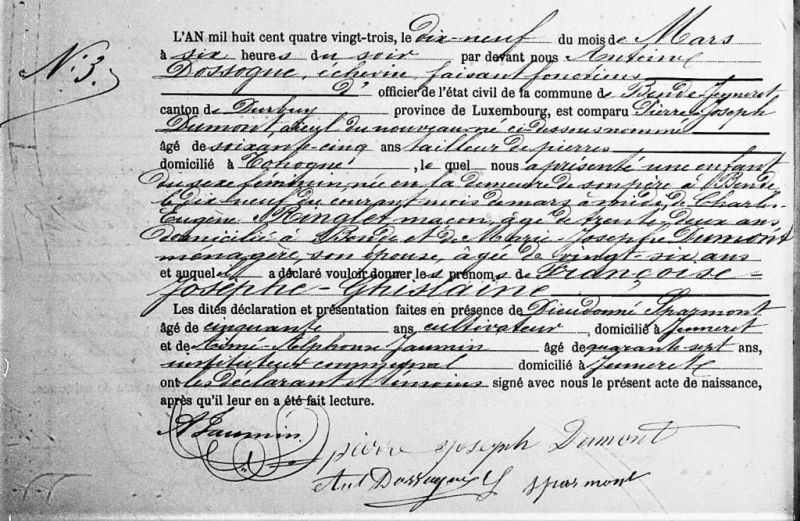 N° 3.
L'AN mil huit cent quatre vingt-trois, le dix-neuf du mois de Mars
à six heures du soir par devant nous Antoine
Dossogne, échevin, faisant fonctions
d' officier de l'état civil de la commune de Bende-Jeneret
canton de Durbuy province de Luxembourg, est comparu Pierre-Joseph
Dumont, aïeul du nouveau-né ci-dessous nommé
âgé de soixante-cinq ans tailleur de pierres
domicilié à Tohogne, le quel nous a présenté une enfant
du sexe féminin, née en la demeure de son père à Bende
le dix-neuf du courant mois de mars à midi, de Charles-
Eugène Ringlet, maçon, âgé de trente-deux ans
domicilié à Bende et de Marie-Josephe Dumont
ménagère, son épouse, âgée de vingt-six ans
et auquel il a déclaré vouloir donner les prénoms de Françoise-
Josèphe-Ghislaine
Les dites déclaration et présentation faites en présence de Dieudonné Sparmont
âgé de cinquante ans, cultivateur, domicilié à Jeneret
et de Aimé-Alphonse Jaumin âgé de quarante sept ans,
instituteur communal domicilié à Jeneret
ont les déclarant et témoins signé avec nous le présent acte de naissance,
après qu'il leur en a été fait lecture.
A Jaumin
pierre joseph Dumont
Ant Dossogne
D sparmont